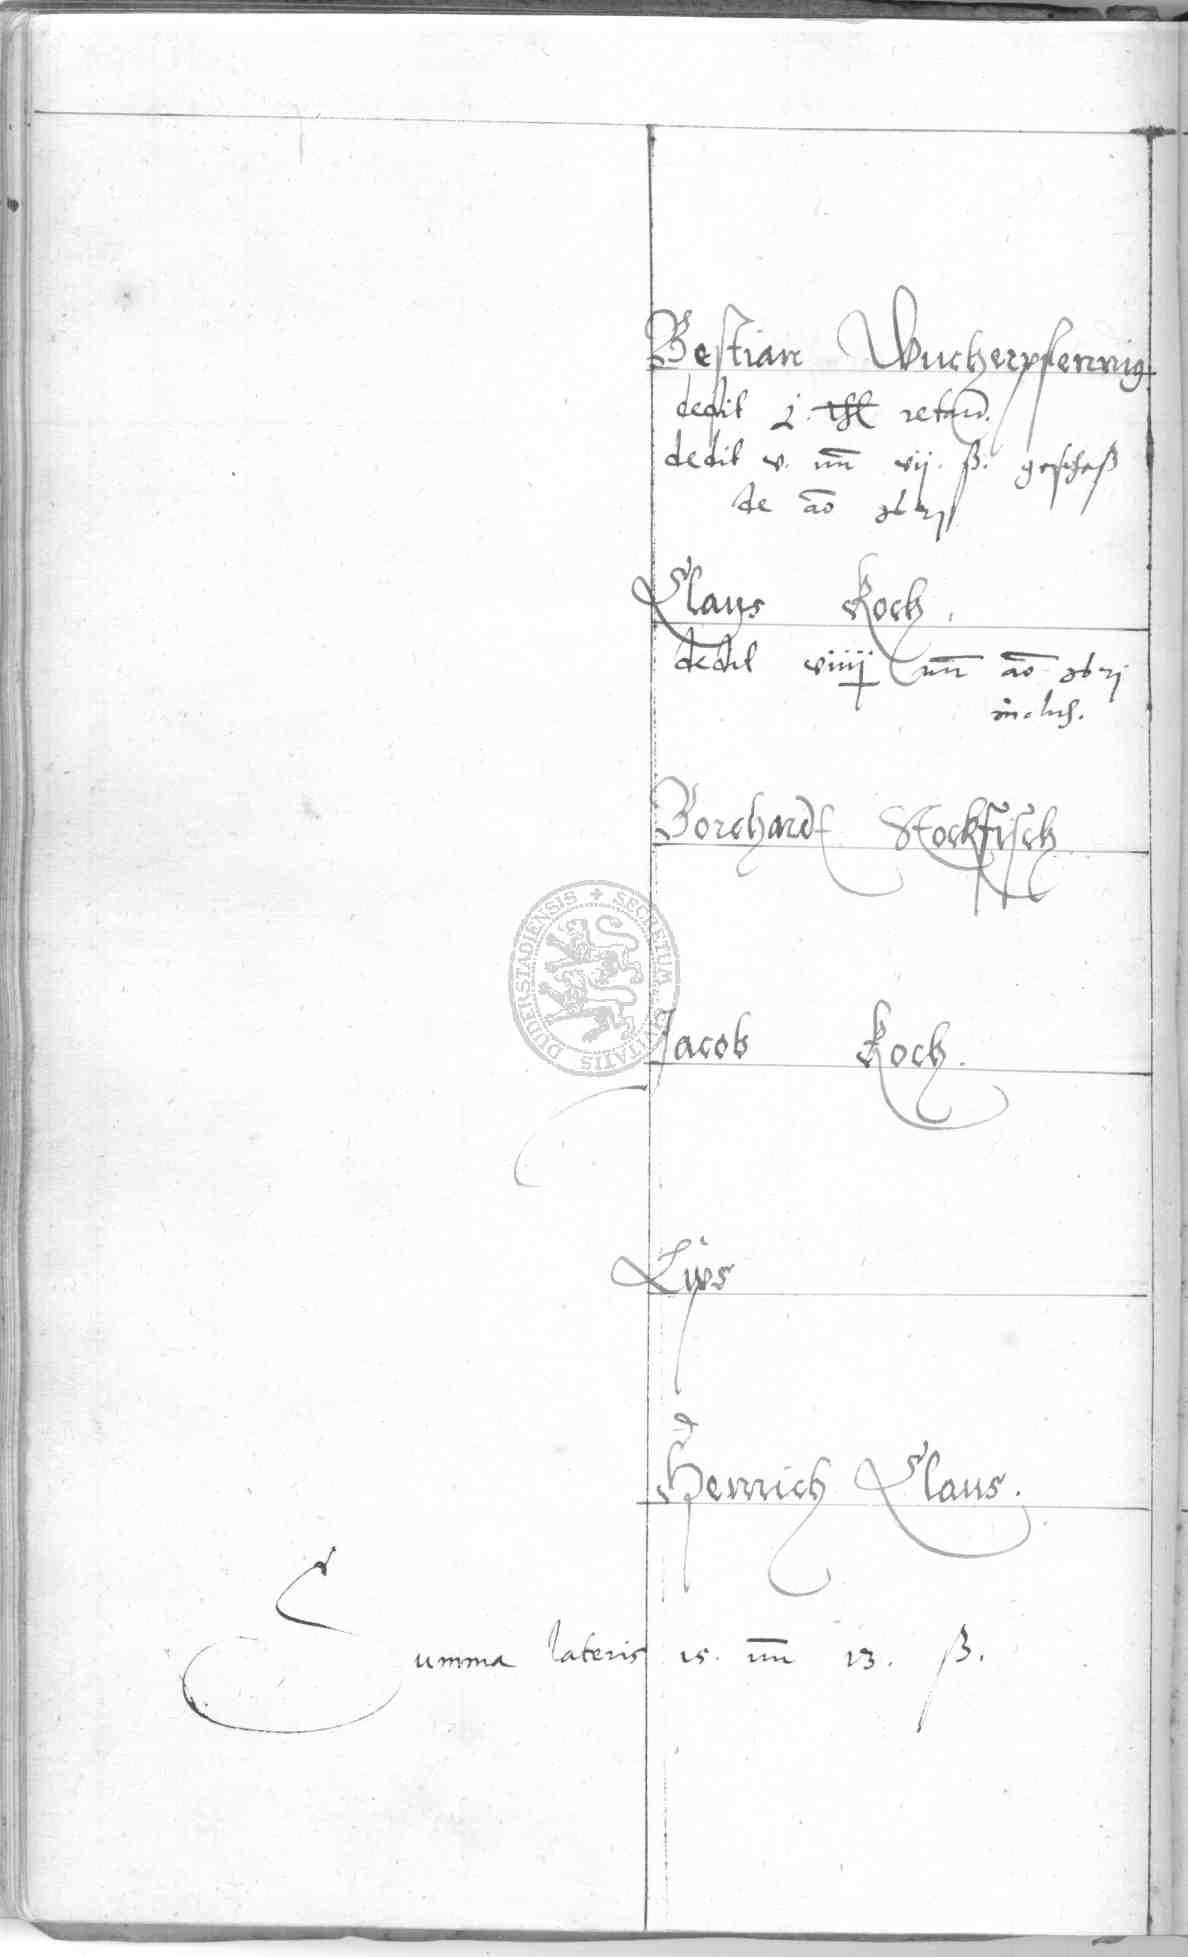 Bestian Wucherpfennig
dedit j. thl retard.
dedit v. mr vij. ß. geschoß
de ao
Claus Koch.
dedit viiij mr ao
inclus.
Borchardt Stockfisch
SECRETUM CIVITATIS DUDERSTADIENSIS
Jacob Koch.
Lips
Henrich Claus.
Summa lateris 15. mr 13. ß.